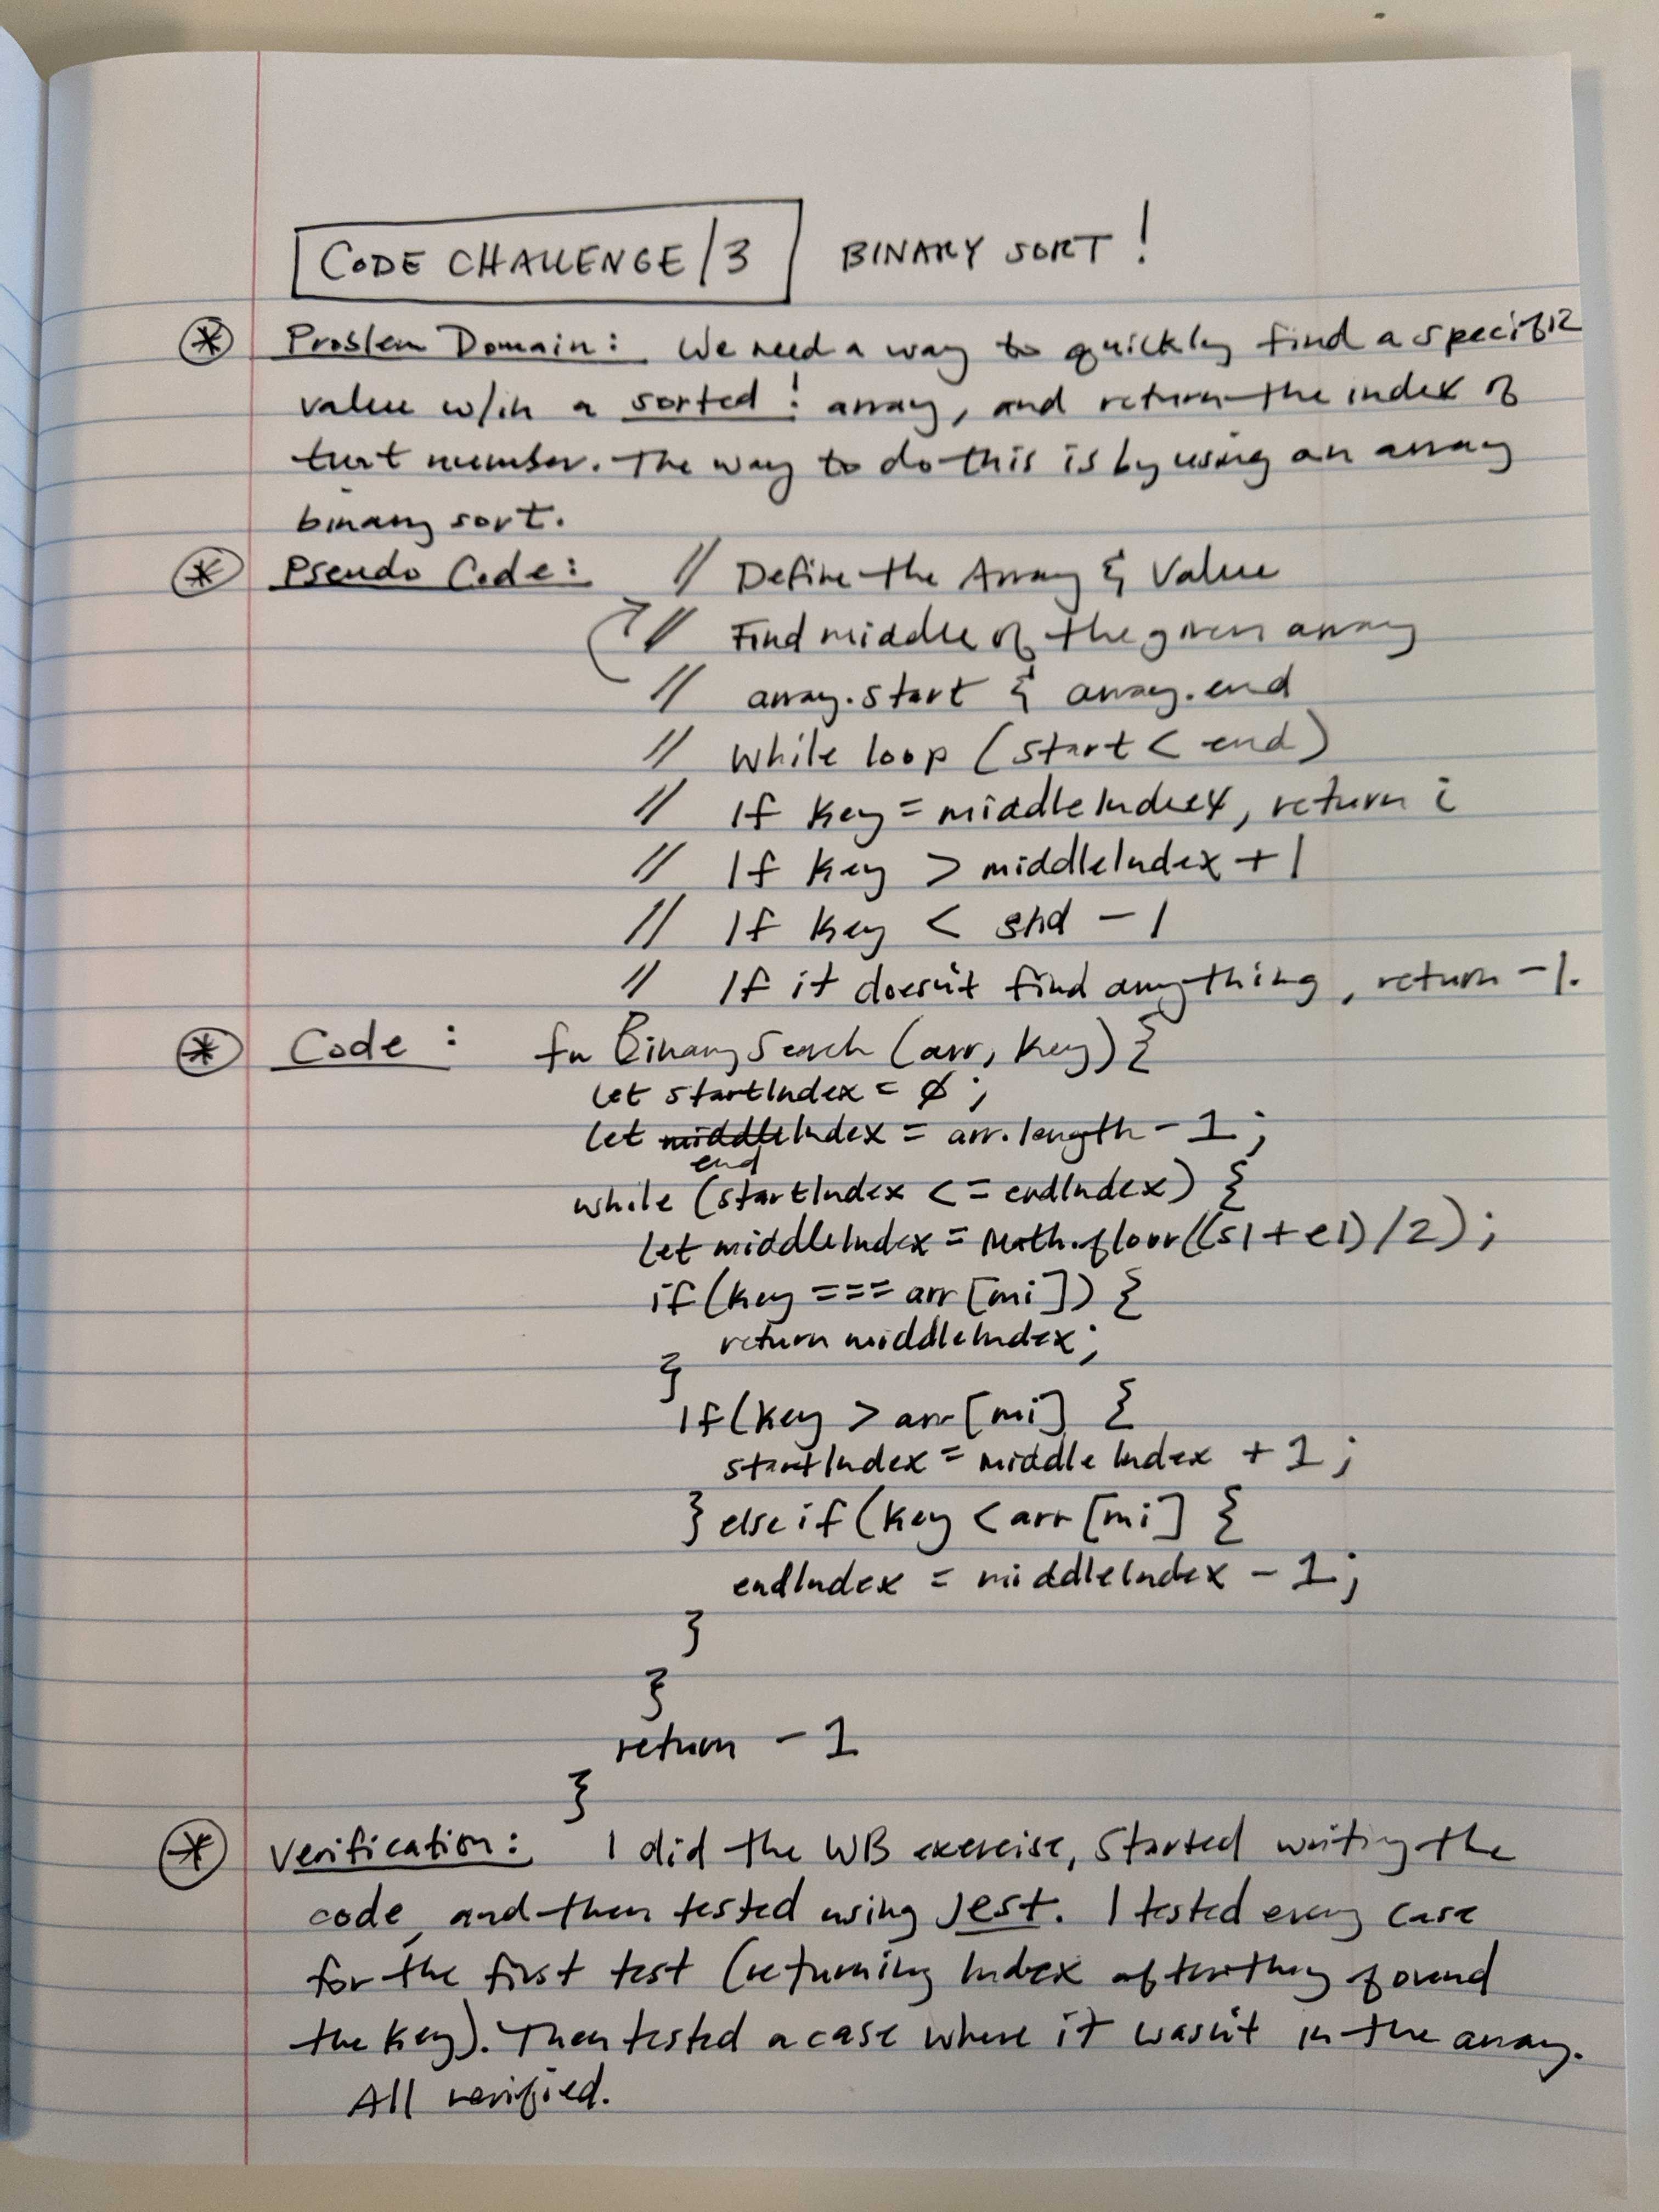 CODE CHALLENGE/3 BINARY SORT!
* Problem Domain: We need a way to quickly find a specific
value w/in a sorted! array, and return the index of
that number. The way to do this is by using an array
binary sort.
* Pseudo Code: // Define the Array & Value
// Find middle of the given array
// array.start & array.end
// While loop (start < end)
// If key = middleIndex, return i
// If key > middleIndex + 1
// If key < end - 1
// If it doesn't find anything, return -1.
* Code: fn BinarySearch (arr, key) {
let startIndex = 0;
let middleIndex = arr.length - 1;
end
while (startIndex <= endIndex) {
let middleIndex = Math.floor((sI + eI) /2);
if (key === arr [mi]) {
return middleIndex;
}
If (key > arr [mi] {
startIndex = middleIndex + 1;
} else if (key < arr [mi] {
endIndex = middleIndex - 1;
}
}
return - 1
}
* Verification: I did the WB exercise, started writing the
code, and then tested using Jest. I tested every case
for the first test (returning index after they found
the key). Then tested a case where it wasn't in the array.
All verified.